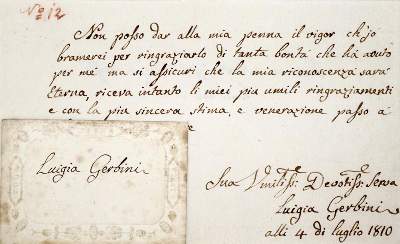 No 12
Non posso dar alla mia penna il vigor ch'io
bramerei per ringraziarlo di tanta bontà che hà avuto
per me ma si assicuri che la mia riconoscenza sarà
Eterna, riceva intanto li miei piu umili ringraziamenti
e con la piu sincera stima, e venerazione passo à
e
Luigia Gerbini
Sua Umilis: Devotis: Serva
Luigia Gerbini
alli 4 di luglio 1810